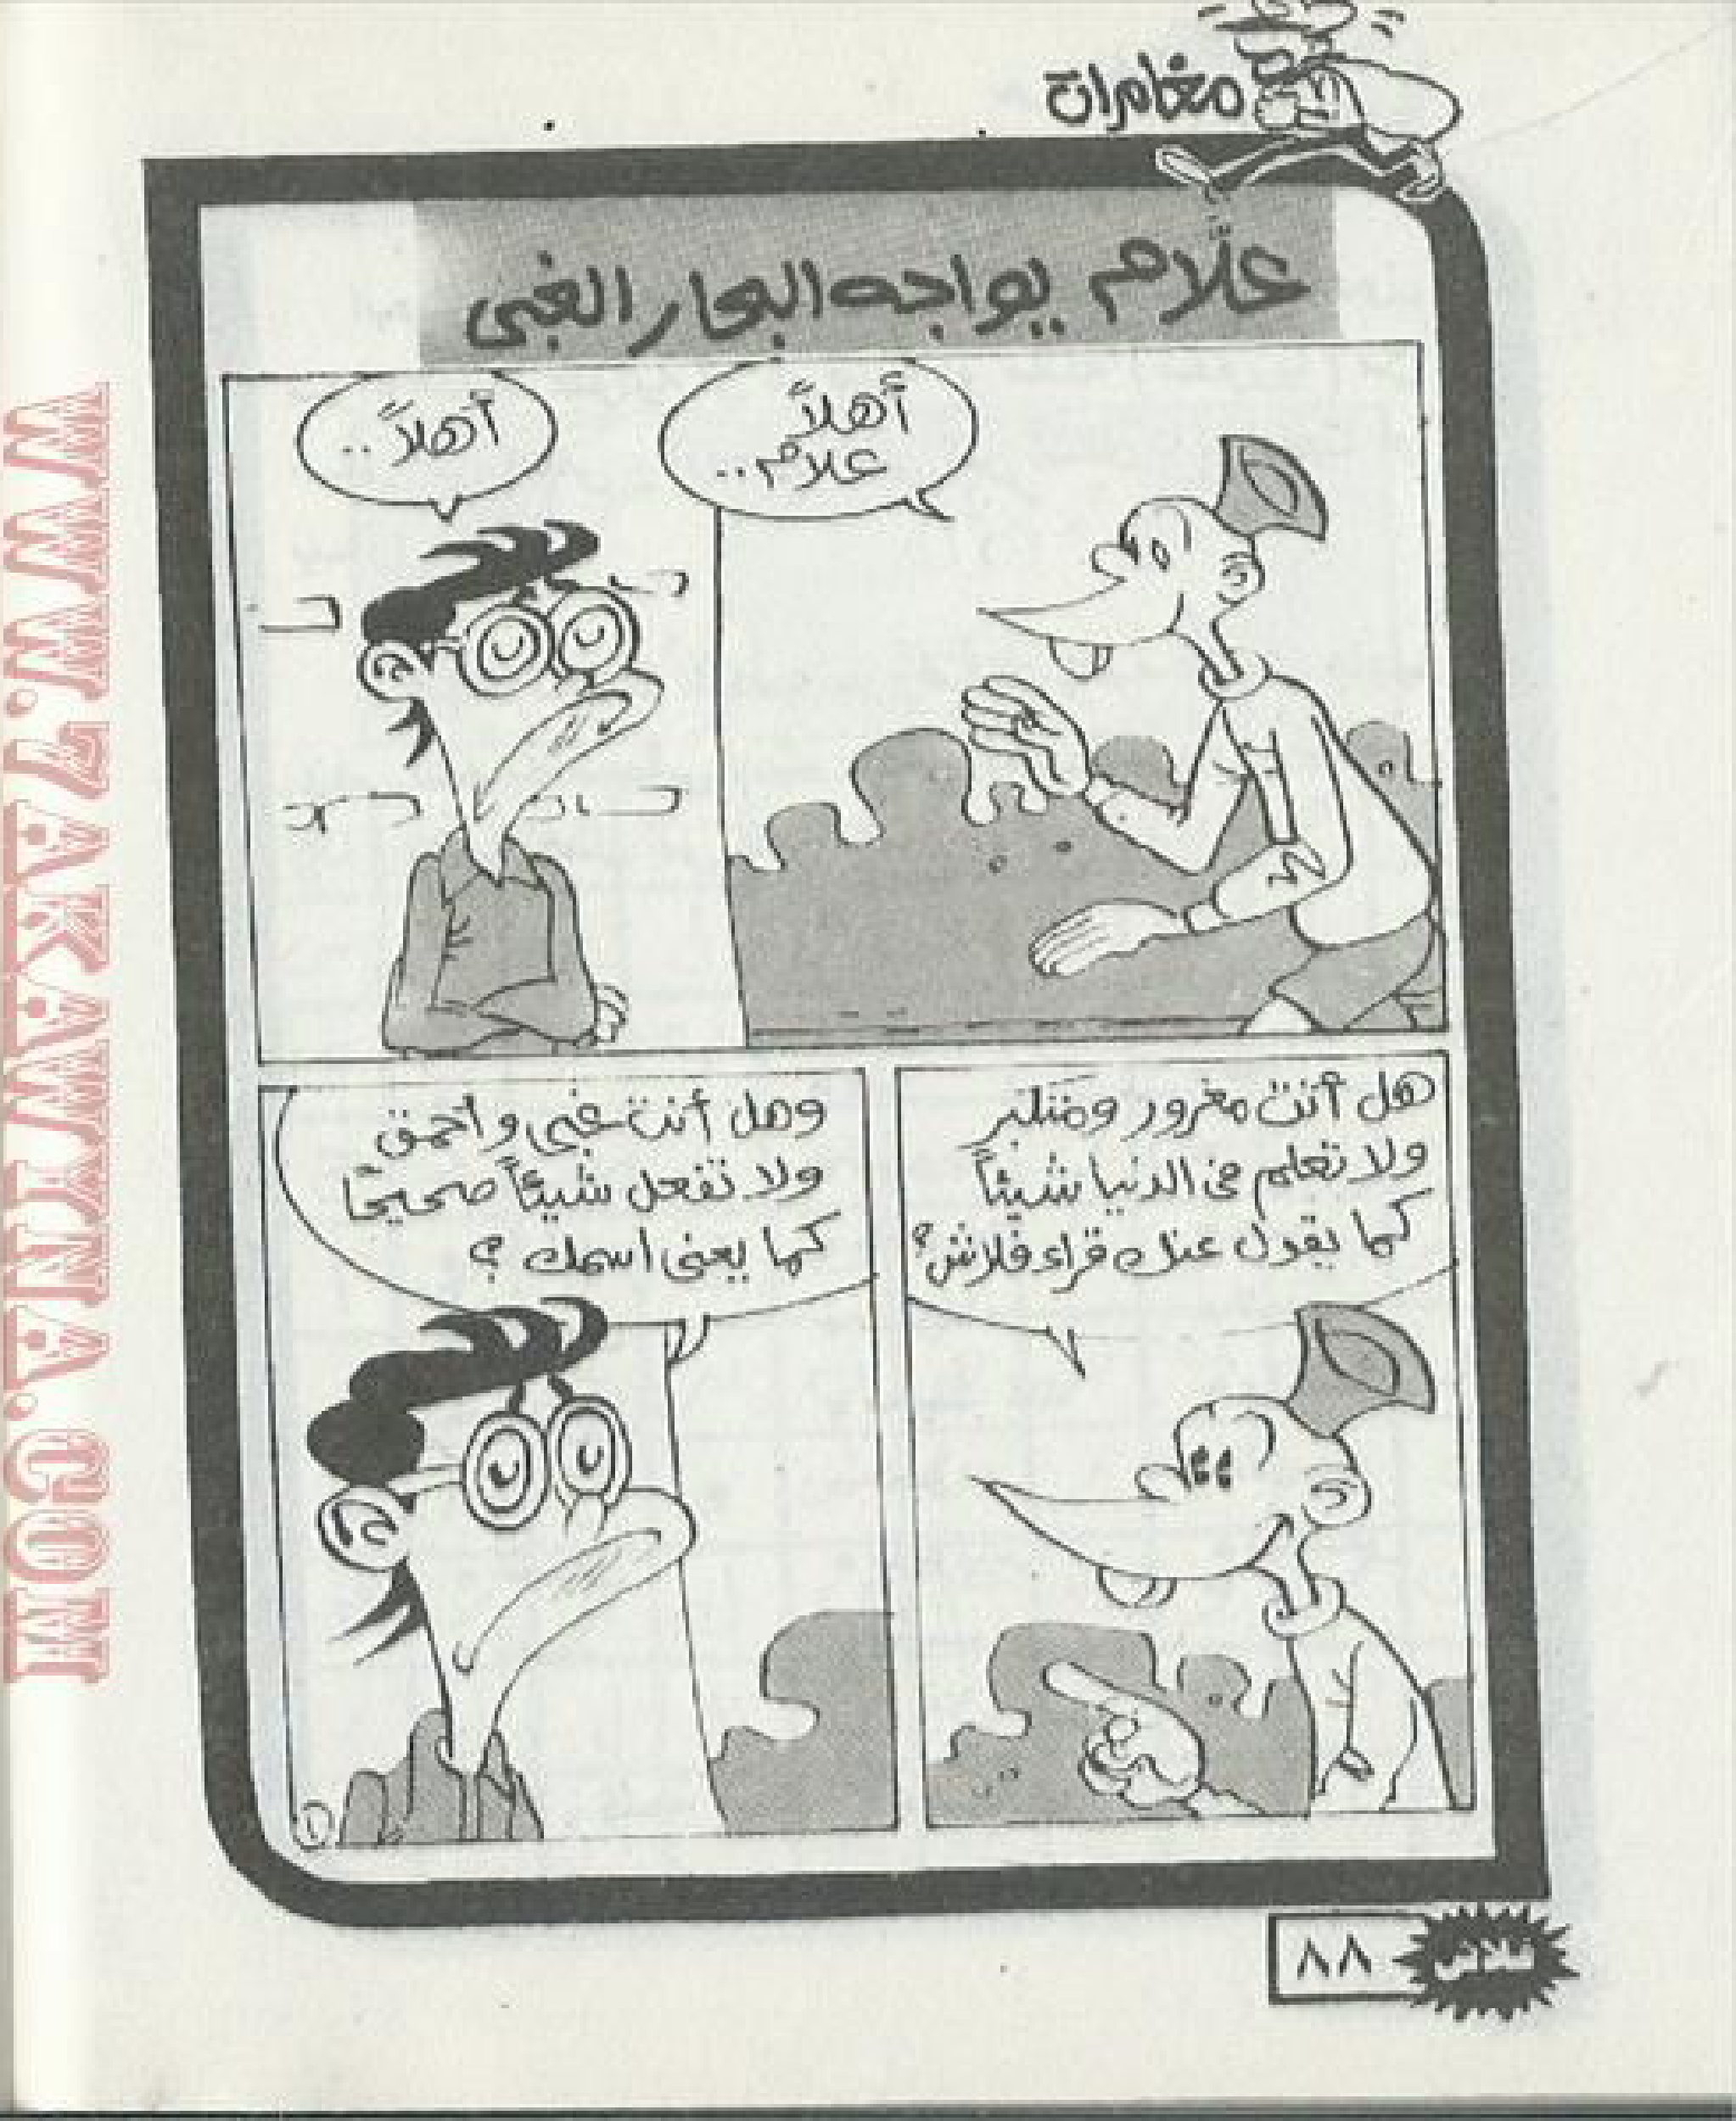 مغامرات
علّام يواجه البحار الغبى
أهلاً
علام..
أهلاً..
هل أنت مغرور ومتكبر
ولا تعلم فى الدنيا شيئاً
كما يقول عنك قراء فلاش؟
وهل أنت غبى وأحمق
ولا تفعل شيئاً صحيحًا
كما يعنى اسمك؟
١
فلاش
٨٨
WWW.7AKAWINA.COM